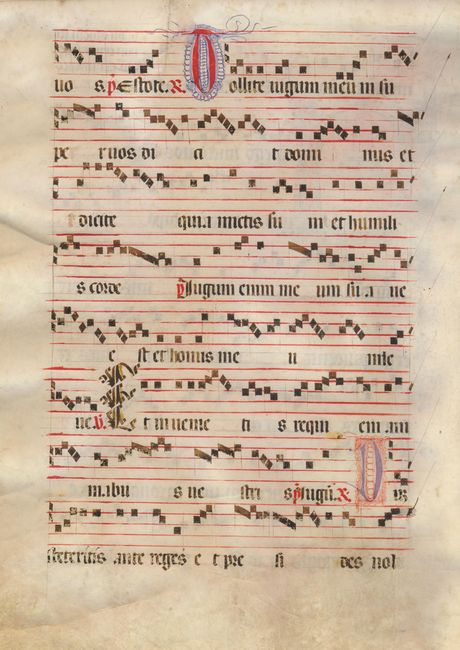 uo s p̄ Estote. ℟ Tollite iugum meū in su
pe r uos di ci t domi nus et
dicite quia mitis su m et humili
s corde p̄ Iugum enim me um sua ue
e st et honus me u m le
ue. ℣. E t inuenie ti s requi em ani
mabu s ue stri s p̄ Iugū. ℟ Dū
steteritis ante reges e t pre si des noli